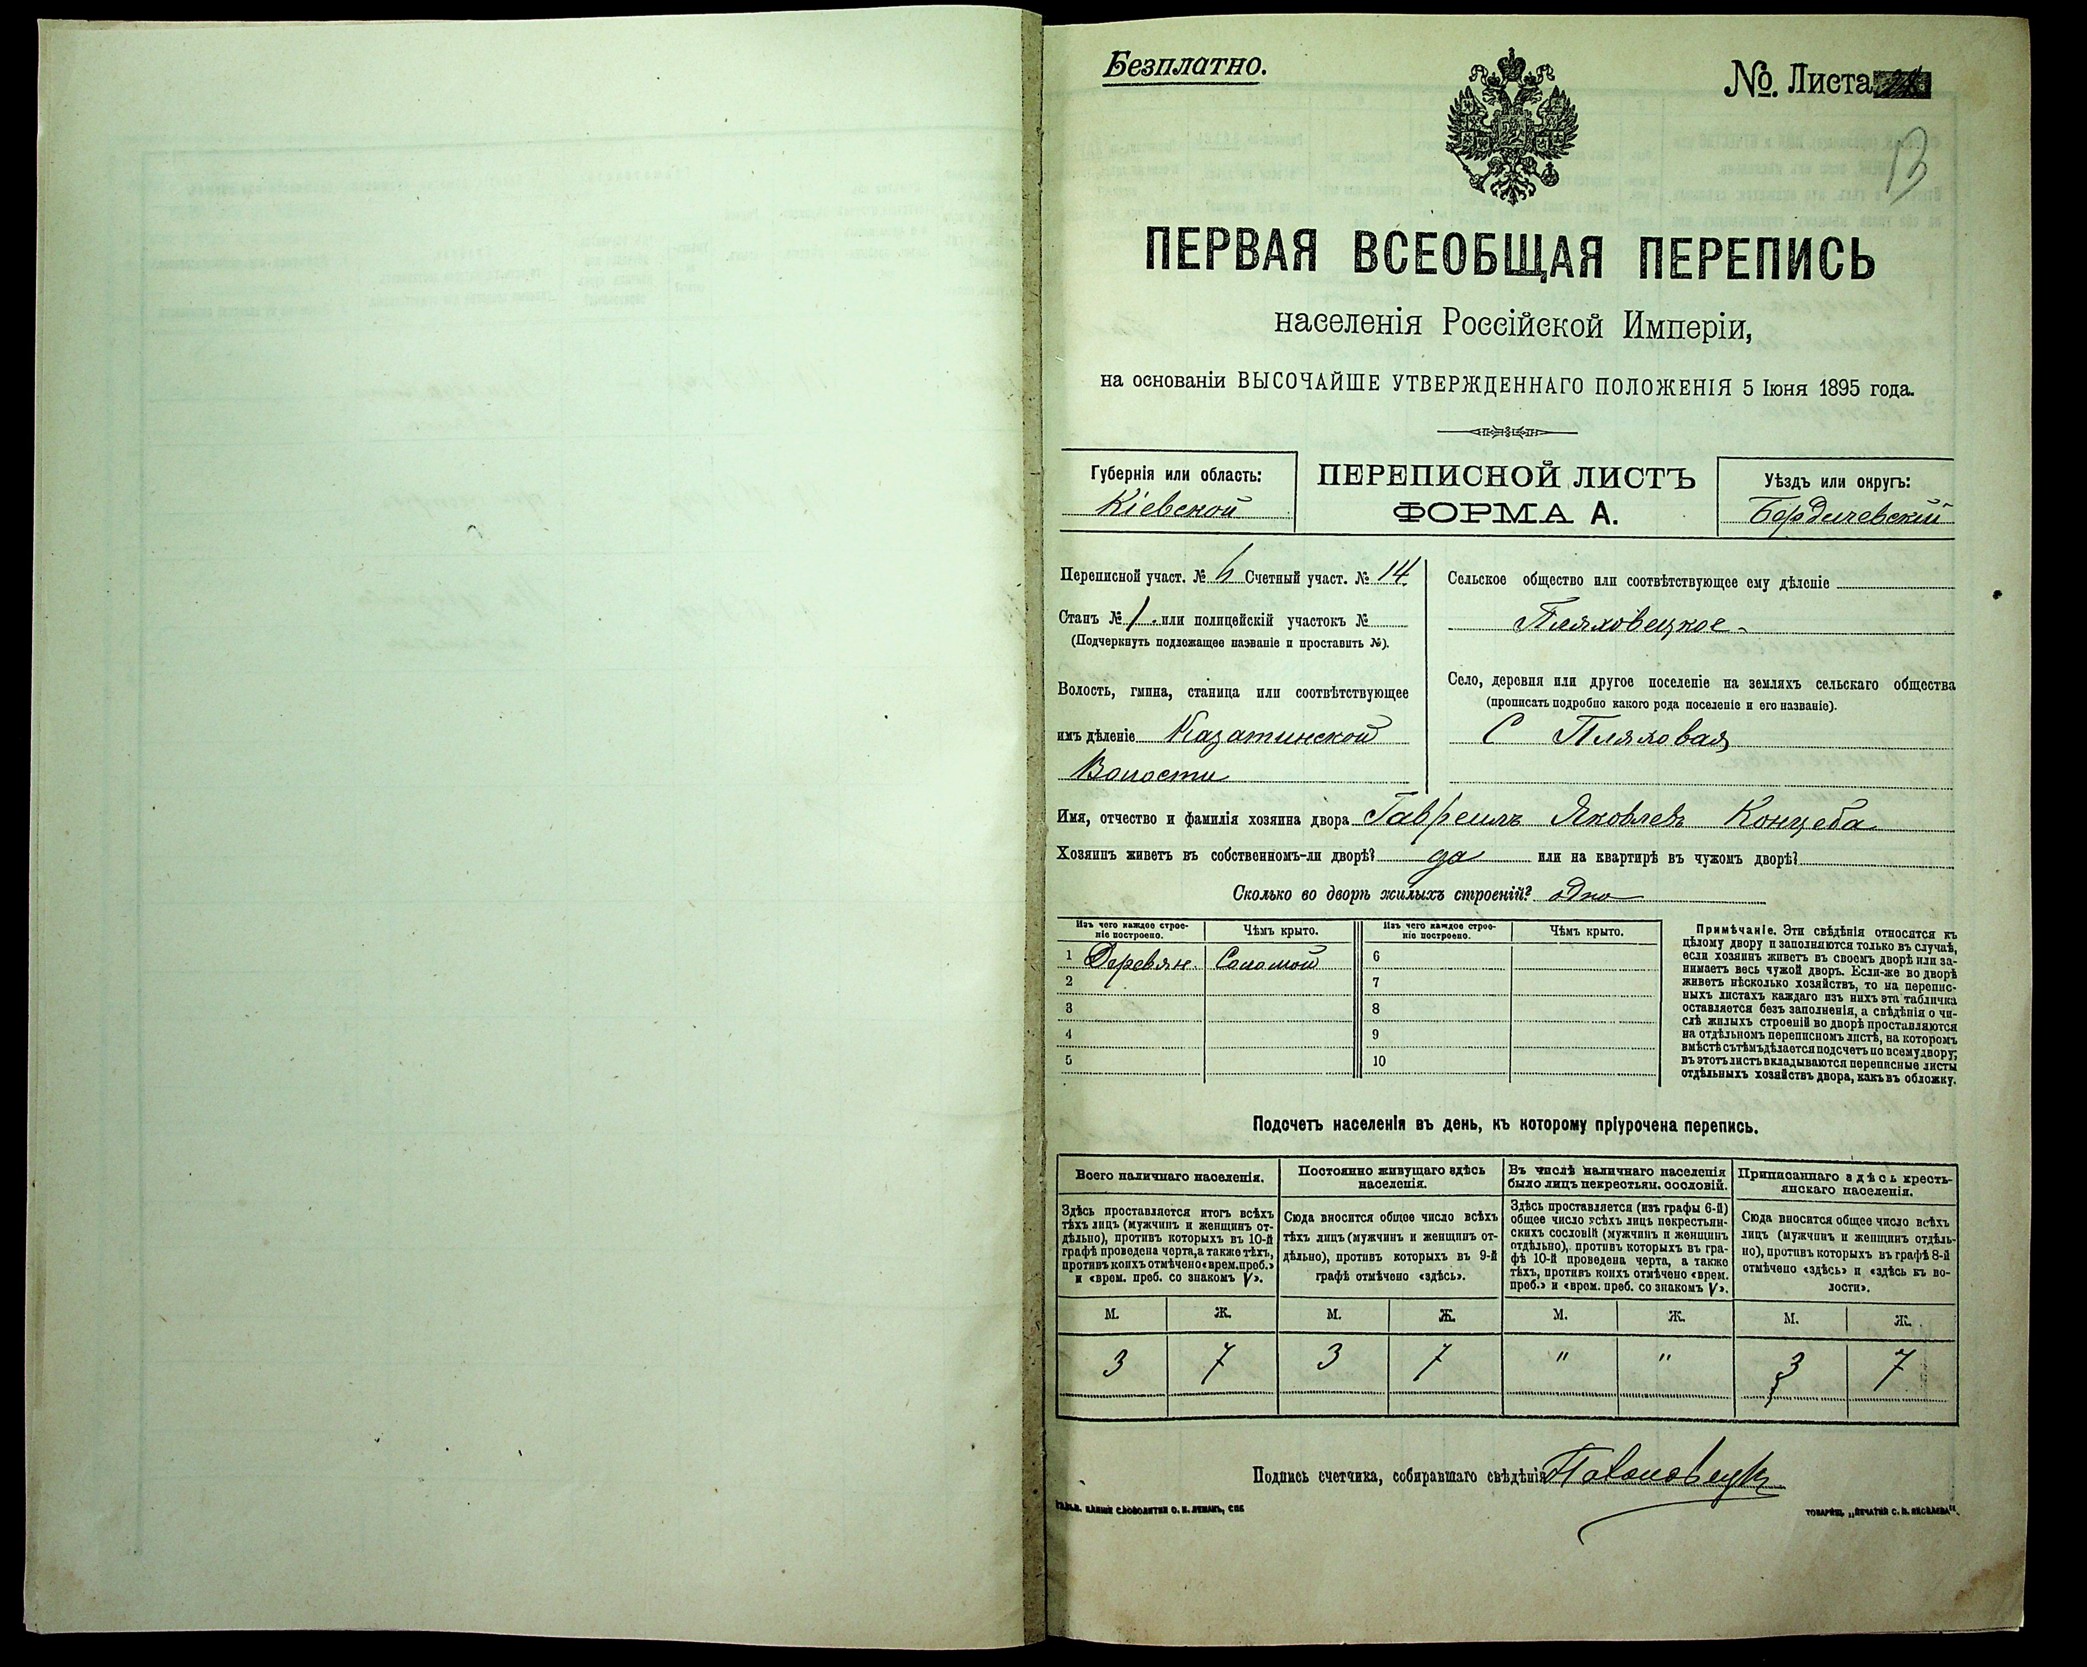 Безплатно.
№. Листа
13
ПЕРВАЯ ВСЕОБЩАЯ ПЕРЕПИСЬ
населенія Россійской Имперіи,
на основаніи ВЫСОЧАЙШЕ УТВЕРЖДЕННАГО ПОЛОЖЕНІЯ 5 Іюня 1895 года.
Губернія или область:
Кіевской
ПЕРЕПИСНОЙ ЛИСТЪ
ФОРМА А.
Уѣздъ или округъ:
Бердичевскій
Переписной участ. № 6 Счетный участ. № 14
Станъ № 1. или полицейскій участокъ №
(Подчеркнуть подлежащее названіе и проставить №).
Волость, гмина, станица или соотвѣтствующее
имъ дѣленіе Казатинской
Волости
Сельское общество или соотвѣтствующее ему дѣленіе
Пляховецкое
Село, деревня или другое поселеніе на земляхъ сельскаго общества
(прописать подробно какого рода поселеніе и его названіе).
С Пляховая
Имя, отчество и фамилія хозяина двора Гавреилъ Яковлевъ Концеба
Хозяинъ живетъ въ собственномъ-ли дворѣ? да или на квартирѣ въ чужомъ дворѣ?
Сколько во дворѣ жилыхъ строеній? одно
Изъ чего каждое строе-
ніе построено.
Чѣмъ крыто.
Изъ чего каждое строе-
ніе построено.
Чѣмъ крыто.
1 Деревян. Соломой 6
2 7
3 8
4 9
5 10
Примѣчаніе. Эти свѣдѣнія относятся къ
цѣлому двору и заполняются только въ случаѣ,
если хозяинъ живетъ въ своемъ дворѣ или за-
нимаетъ весь чужой дворъ. Если-же во дворѣ
живетъ нѣсколько хозяйствъ, то на перепис-
ныхъ листахъ каждаго изъ нихъ эта табличка
оставляется безъ заполненія, а свѣдѣнія о чи-
слѣ жилыхъ строеній во дворѣ проставляются
на отдѣльномъ переписномъ листѣ, на которомъ
вмѣстѣ съ тѣмъ дѣлается подсчетъ по всему двору;
въ этотъ листъ вкладываются переписные листы
отдѣльныхъ хозяйствъ двора, какъ въ обложку.
Подсчетъ населенія въ день, къ которому пріурочена перепись.
Всего наличнаго населенія.
Здѣсь проставляется итогъ всѣхъ
тѣхъ лицъ (мужчинъ и женщинъ от-
дѣльно), противъ которыхъ въ 10-й
графѣ проведена черта, а также тѣхъ,
противъ коихъ отмѣчено «врем. преб.»
и «врем. преб. со знакомъ V».
Постоянно живущаго здѣсь
населенія.
Сюда вносится общее число всѣхъ
тѣхъ лицъ (мужчинъ и женщинъ от-
дѣльно), противъ которыхъ въ 9-й
графѣ отмѣчено «здѣсь».
Въ числѣ наличнаго населенія
было лицъ некрестьян. сословій.
Здѣсь проставляется (изъ графы 6-й)
общее число всѣхъ лицъ некрестьян-
скихъ сословій (мужчинъ и женщинъ
отдѣльно), противъ которыхъ въ гра-
фѣ 10-й проведена черта, а также
тѣхъ, противъ коихъ отмѣчено «врем.
преб.» и «врем. преб. со знакомъ V».
Приписаннаго здѣсь кресть-
янскаго населенія.
Сюда вносится общее число всѣхъ
лицъ (мужчинъ и женщинъ отдѣль-
но), противъ которыхъ въ графѣ 8-й
отмѣчено «здѣсь» и «здѣсь къ во-
лости».
М. Ж. М. Ж. М. Ж. М. Ж.
3 7 3 7 " " 3 7
Подпись счетчика, собиравшаго свѣдѣнія
СЛОВОЛИТНИ О. И. ЛЕМАНЪ, СПБ
ТОВАРИЩ. „ПЕЧАТНИ С. П. ЯКОВЛЕВА“.